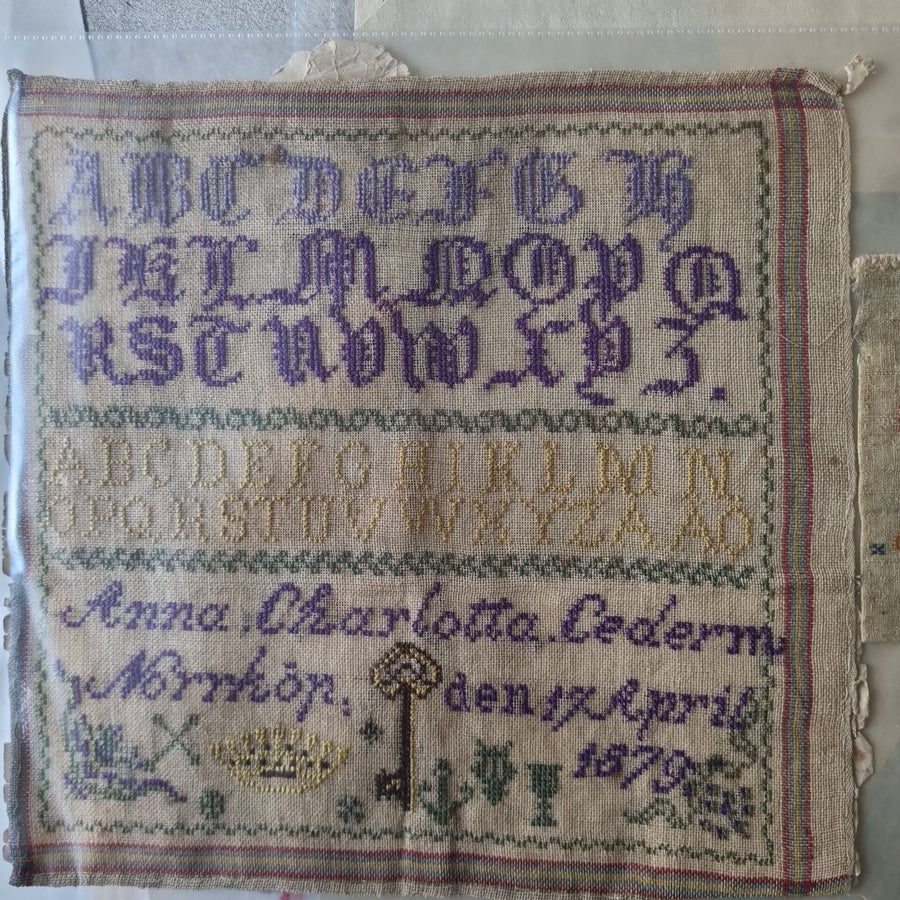 A B C D E F G H
I K L M N O P Q
R S T U V W X Y Z.
A B C D E F G H I K L M N
O P Q R S T U V W X Y Z Å Ä Ö
Anna. Charlotta. Cederm
Norrköp. den 17 April
1879